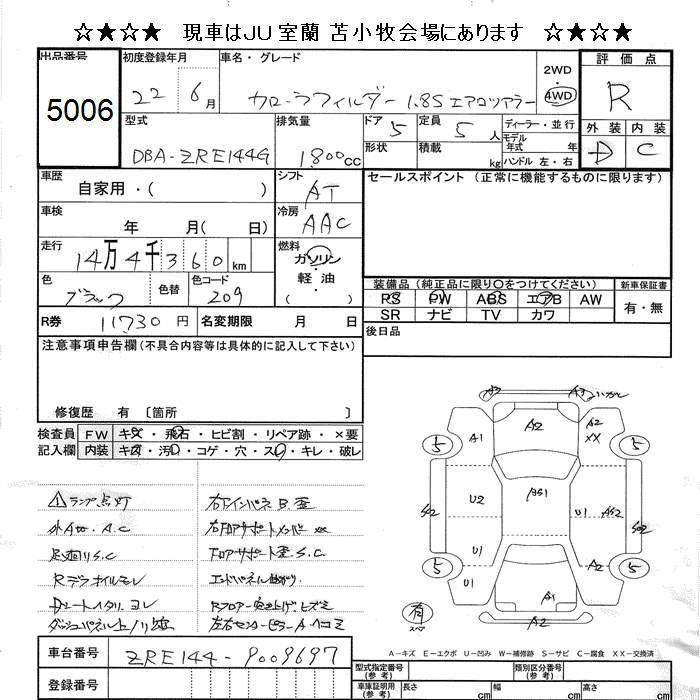 ☆★☆★ 現車はJU室蘭 苫小牧会場にあります ☆★☆★
出品番号
5006
初度登録年月
22 6月
車名・グレード
カローラフィルダー 1.8S エアロツアラー
2WD
・
4WD
評価点
R
外装 内装
D C
型式
DBA-ZRE144G
排気量
1800cc
ドア 5
形状
定員 5人
積載 kg
ディーラー・並行
モデル
年式 年
ハンドル 左・右
車歴
自家用・( )
シフト
AT
セールスポイント (正常に機能するものに限ります)
車検
年 月( 日)
冷房
AAC
走行
14万4千360km
燃料
ガソリン
・
軽油
( )
色
ブラック
色替
色コード
209
装備品 (純正品に限り〇をつけてください)
PS PW ABS エアB AW
SR ナビ TV カワ
新車保証書
有・無
R券 11730円
名変期限 月 日
後日品
注意事項申告欄(不具合内容等は具体的に記入して下さい)
修復歴 有 〔箇所 〕
検査員
記入欄
FW キズ・飛石・ヒビ割・リペア跡・×要
内装 キズ・汚レ・コゲ・穴・スレ・キレ・破レ
ランプ点灯
外A古、A.C
足廻りS.C
Rデフオイルモレ
右FインパネB.歪
右FロアサポートメンバーXX
Fロアサポート歪S.C
エンドパネル曲がり
Rフロアー突上げヒズミ
左右センターピラーAヘコミ
A3
A3
A2
A1
A2
XX
5
5
U2
AS1
U1
AS2
S02
S02
U1
A2
5
5
A1
A2
有
スペア
A-キズ E-エクボ U-凹み W-補修跡 S-サビ C-腐食 XX-交換済
車台番号
ZRE144-9009697
登録番号
型式指定番号
(参考)
類別区分番号
(参考)
車庫証明用
(参考)
長さ cm
幅 cm
高さ cm